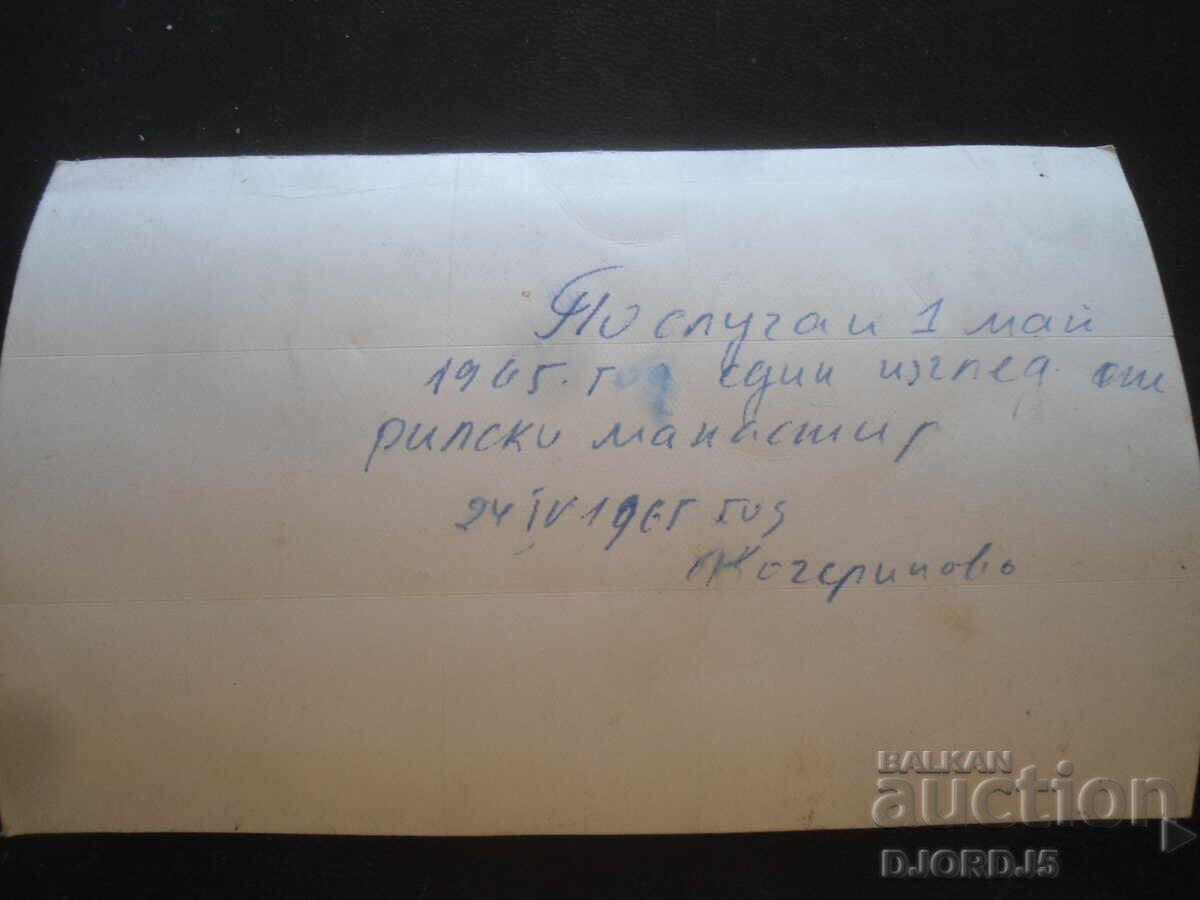 По случаи 1 май
1965. год един изглед от
рилски манастир
24 IV 1965 год
Кочериново
BALKAN
auction
DJORDJ5